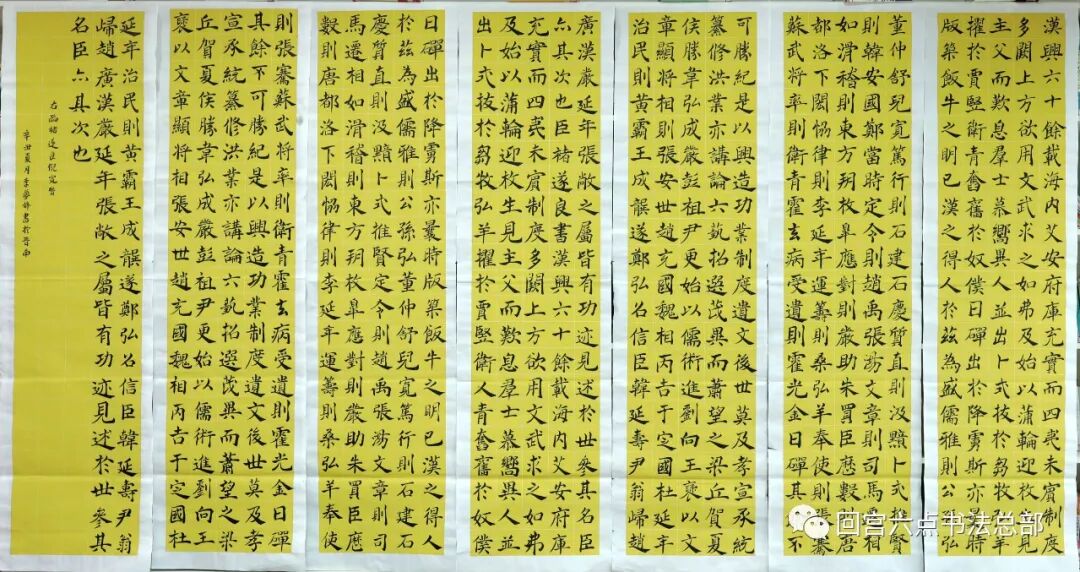 漢興六十餘載海内艾安府庫充實而四夷未賓制度
多闕上方欲用文武求之如弗及始以蒲輪迎枚生見
主父而歎息羣士慕嚮異人並出卜式拔於芻牧弘羊
擢於賈豎衛青奮舊於奴僕日磾出於降虜斯亦曩時
版築飯牛之朋已漢之得人於茲為盛儒雅則公孫弘
董仲舒兒寬篤行則石建石慶質直則汲黯卜式推賢
則韓安國鄭當時定令則趙禹張湯文章則司馬遷相
如滑稽則東方朔枚皋應對則嚴助朱買臣歷數則唐
都洛下閎協律則李延年運籌則桑弘羊奉使則張騫
蘇武將率則衛青霍去病受遺則霍光金日磾其餘不
可勝紀是以興造功業制度遺文後世莫及孝宣承統
纂修洪業亦講論六藝招選茂異而蕭望之梁丘賀夏
侯勝韋弘成嚴彭祖尹更始以儒術進劉向王褒以文
章顯將相張安世趙充國魏相丙吉于定國杜延年
治民則黃霸王成龔遂鄭弘名信臣韓延壽尹翁歸趙
廣漢嚴延年張敞之屬皆有功迹見述於世參其名臣
亦其次也臣褚遂良書漢興六十餘載海内艾安府庫
充實而四夷未賓制度多闕上方欲用文武求之如弗
及始以蒲輪迎枚生見主父而歎息羣士慕嚮異人並
出卜式拔於芻牧弘羊擢於賈豎衛人青奮舊於奴僕
日磾出於降虜斯亦曩時版築飯牛之朋已漢之得人
於茲為盛儒雅則公孫弘董仲舒兒寬篤行則石建石
慶質直則汲黯卜式推賢定令則趙禹張湯文章則司
馬遷相如滑稽則東方朔枚皋應對則嚴助朱買臣歷
數則唐都洛下閎協律則李延年運籌則桑弘羊奉使
則張騫蘇武將率則衛青霍去病受遺則霍光金日磾
其餘不可勝紀是以興造功業制度遺文後世莫及孝
宣承統纂修洪業亦講論六藝招選茂異而蕭望之梁
丘賀夏侯勝韋弘成嚴彭祖尹更始以儒術進劉向王
褒以文章顯將相張安世趙充國魏相丙吉于定國杜
延年治民則黃霸王成龔遂鄭弘名信臣韓延壽尹翁
歸趙廣漢嚴延年張敞之屬皆有功迹見述於世參其
名臣亦其次也
右臨褚遂良倪寬贊
辛丑夏月李書於晉南
回宫六点书法总部